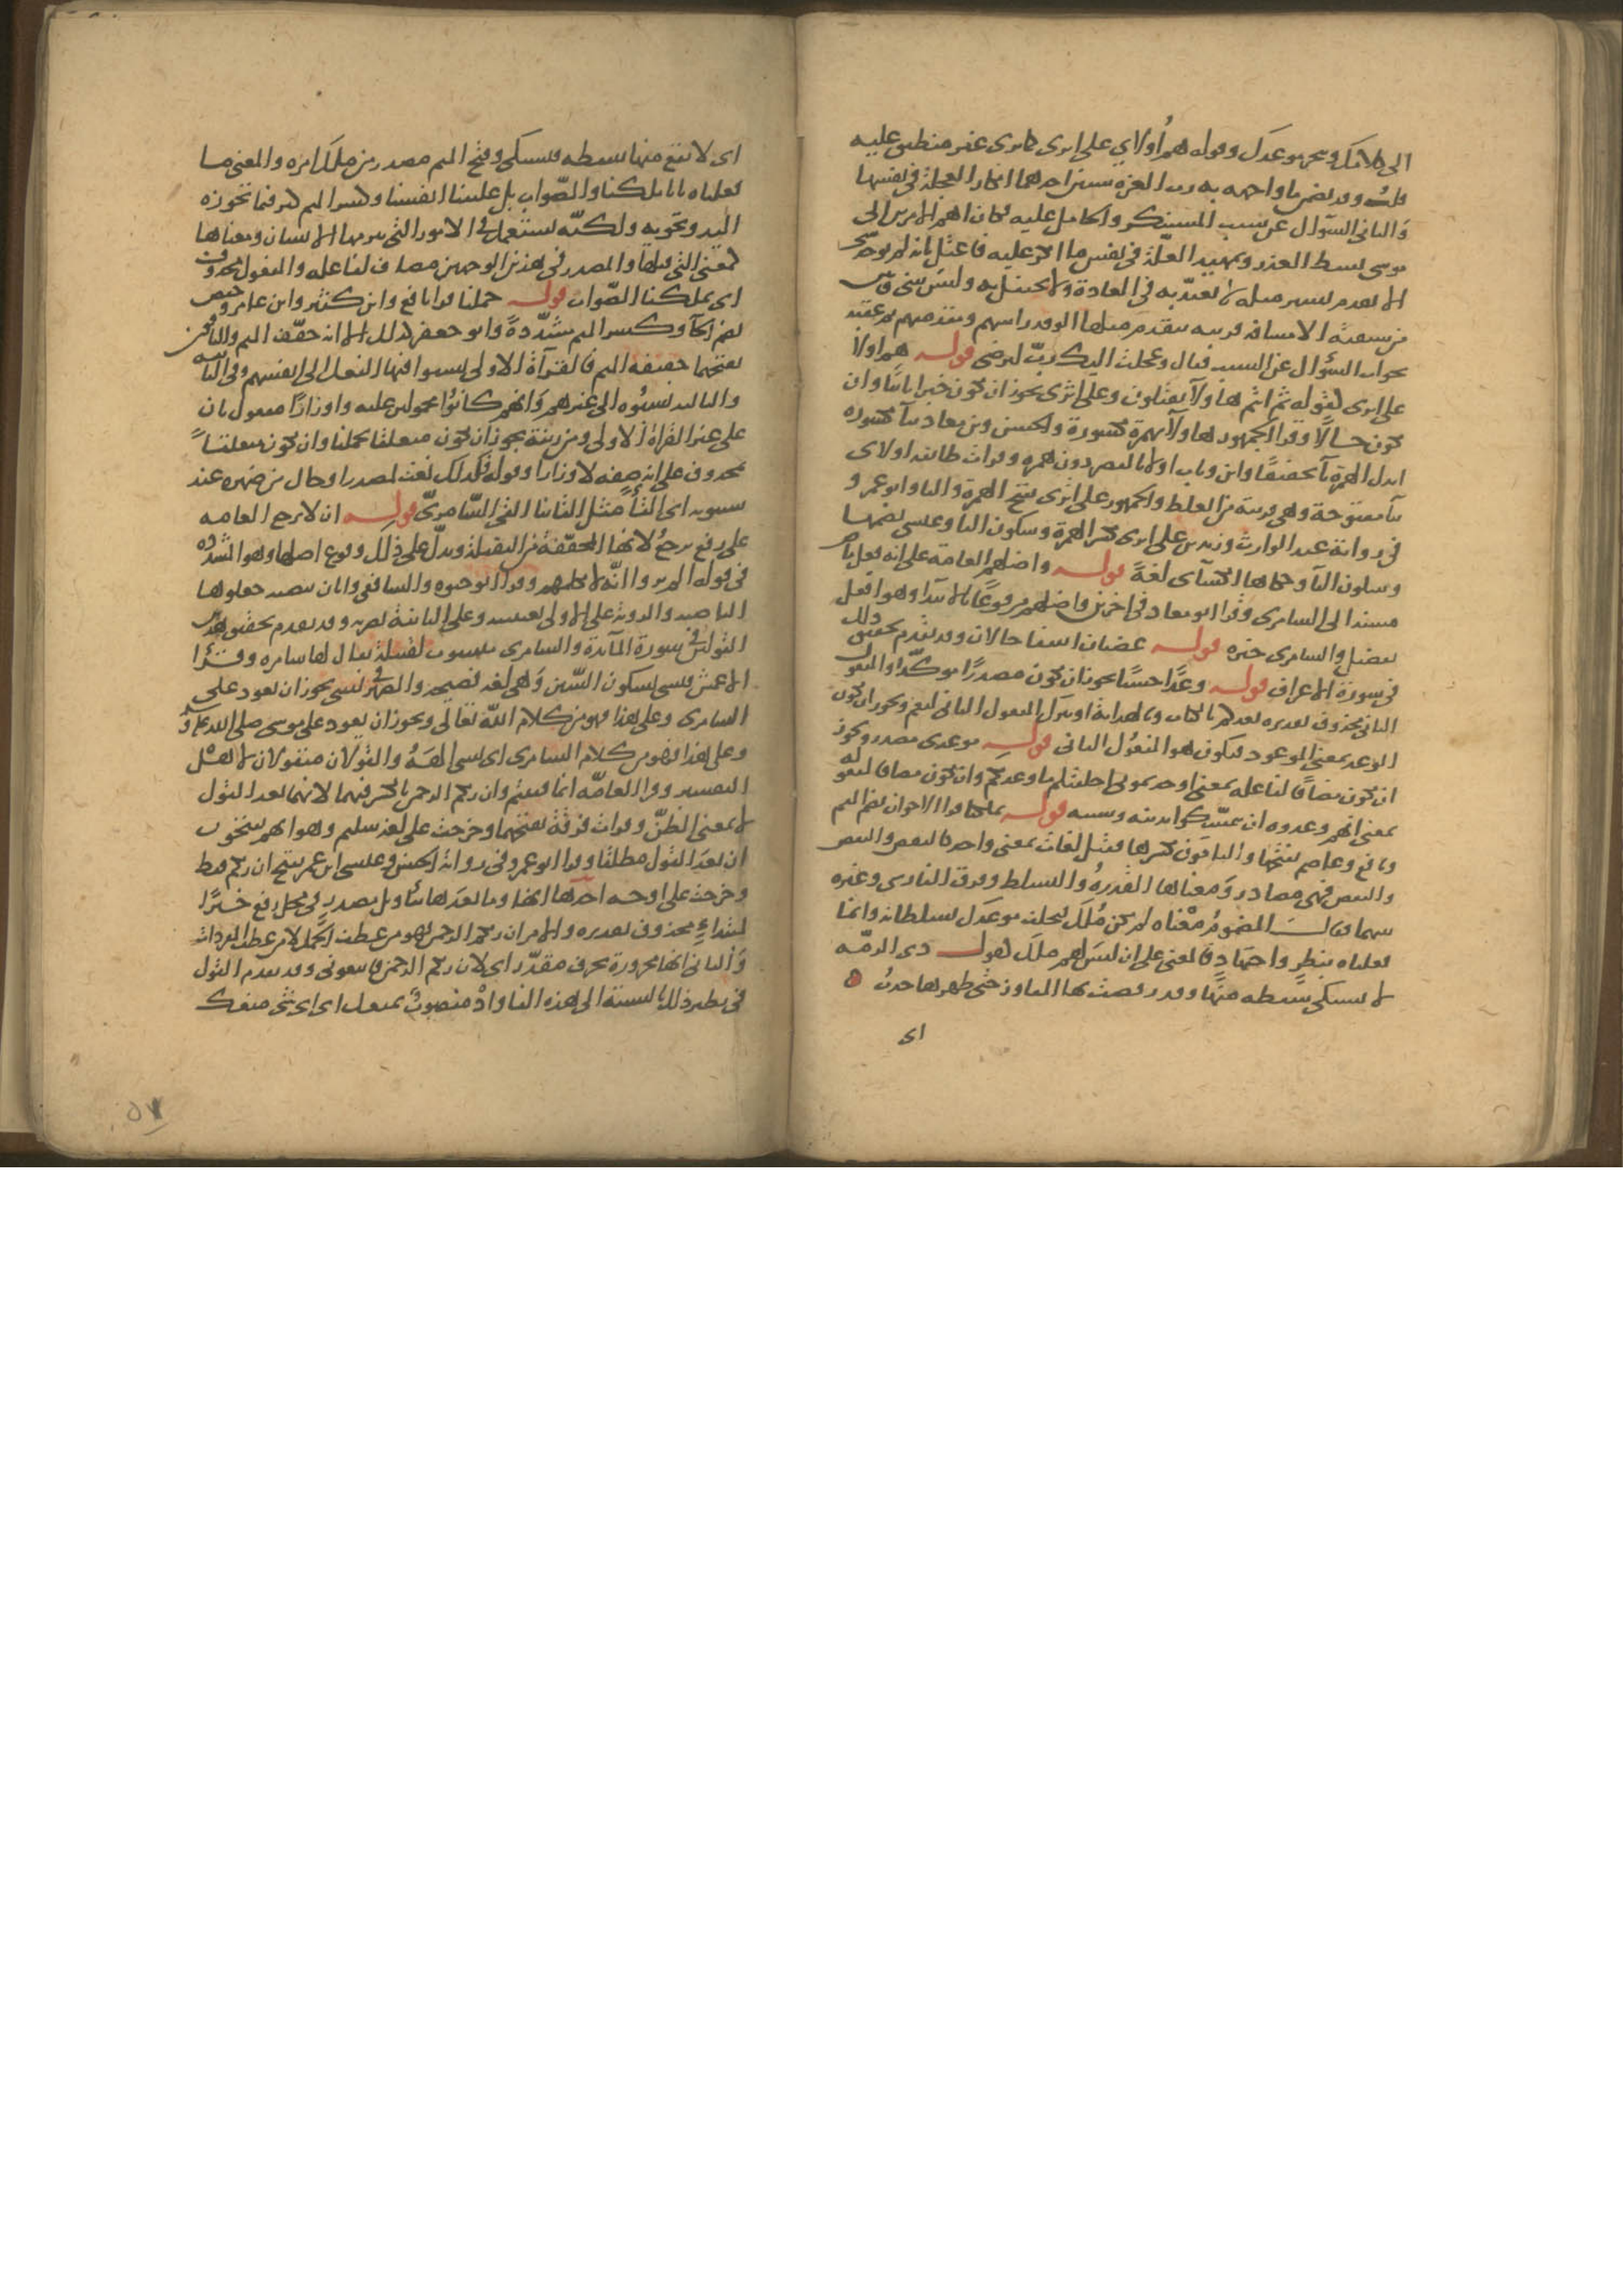 الى كلامك وتنجز موعدك وقوله هم أولاء على اثرى كما ترى غير منطبق عليه
قلت قد تضمن ما واجهه به رب العزة شيئين احدهما انكار العجلة فى نفسها
والثانى السؤال عن سبب المستنكر والحامل عليه فكان اهم الامرين الى
موسى بسط العذر وتمهيد العلة فى نفس ما انكر عليه فاعتل بانه لم يوجد منى
الا تقدم يسير مثله لا يعتد به فى العادة ولا يحتفل به وليس بينى وبين
من سبقته الا مسافة قريبة يتقدم بمثلها الوفد راسهم ومقدمهم ثم عقبه
بجواب السؤال عن السبب فقال وعجلت اليك رب لترضى قوله هم اولاء
على اثرى كقوله ثم انتم هاولاء تقتلون وعلى اثرى يجوز ان يكون خبرا ثانيا وان
يكون حالا وقرا الجمهور هاولاء بهمزة مكسورة والحسن وابن معاذ بياء مكسورة
ابدل الهمزة ياء تخفيفا وابن وثاب اولا بالقصر دون همزة وقرات طائفة اولاى
بياء مفتوحة وهى قريبة من الغلط والجمهور على اثرى بفتح الهمزة والثا وابو عمرو
فى رواية عبد الوارث وزيد بن على اثرى بكسر الهمزة وسكون الثا وعيسى بضمها
وسكون الثا وحكاها الكسآى لغة قوله واضلهم العامة على انه فعل ماض
مسند الى السامرى وقرا ابو معاذ فى اخرين واضلهم مرفوعا بالابتدا وهو افعل
تفضيل والسامرى خبره قوله غضبان اسفا حالان وقد تقدم تحقيق ذلك
فى سورة الاعراف قوله وعدا حسنا يجوز ان يكون مصدرا موكدا والمفعول
الثانى محذوف تقديره يعدكم بالكتاب وبالهداية او يترك المفعول الثانى ليعم ويجوز ان يكون
الوعد بمعنى الموعود فيكون هو المفعول الثانى قوله موعدى مصدر ويجوز
ان يكون مضافا لفاعله بمعنى اوجدتمونى اخلفتكم ما وعدتكم وان يكون مضافا لمفعوله
بمعنى انهم وعدوه ان يتمسكوا بدينه وسنته قوله بملكنا قرا الاخوان بضم الميم
ونافع وعاصم بفتحها والباقون بكسرها فقيل لغات بمعنى واحد كالنقض والنقض
والنقض فهى مصادر ومعناها القدرة والتسلط وفرق الفارسى وغيره
بينها فقال المضموم معناه لم يكن ملك فنخلف موعدك بسلطانه وانما
فعلناه بنظر واجتهاد فالمعنى على ان ليس لهم ملك كقول ذى الرمة
لا يشتكى سقطة منها وقد رقصت بها المفاوز حتى ظهرها حدب
اى
اى لا يقع منها سقطة فتشتكى وفتح الميم مصدر من ملك امره والمعنى ما
فعلناه بانا ملكنا والصواب بل غلبتنا انفسنا وكسر الميم كثر فيما تحوزه
اليد وتحويه ولكنه يستعمل فى الامور التى يبرمها الانسان ومعناها
كمعنى التى قبلها والمصدر فى هذين الوجهين مضاف لفاعله والمفعول محذوف
اى بملكنا الصواب قوله حملنا قرا نافع وابن كثير وابن عامر وحفص
بضم الحآ وكسر الميم مشددة وابو جعفر كذلك الا انه خفف الميم والباقون
بفتحها خفيفة الميم فالقرآة الاولى نسبوا فيها الفعل الى انفسهم وفى الثانية
والثالثة نسبوه الى غيرهم وانهم كانوا محمولين عليه واوزارا مفعول ثان
على غير القراة الاولى ومن زينة يجوز ان يكون متعلقا بحملنا وان يكون متعلقا
بمحذوف على انه صفة لاوزار وقوله فكذلك نعت لمصدر او حال من ضميره عند
سيبويه اى القآ مثل القائنا القى السامرى قوله ان لا يرجع العامه
على رفع يرجع لانها المخففة من الثقيلة ويدل على ذلك وقوع اصلها وهو المشددة
فى قوله الم يروا انه لا يكلمهم وقرا ابو حيوه والشافعى وابان بنصبه جعلوها
الناصبة والروية على الاولى يقينية وعلى الثانية بصرية وقد تقدم تحقيق هذين
القولين فى سورة المآئدة والسامرى منسوب لقبيلة يقال لها سامره وقرا
الاعمش فنسى بسكون السين وهى لغة فصيحة والضمير فى نسى يجوز ان يعود على
السامرى وعلى هذا فهو من كلام الله تعالى ويجوز ان يعود على موسى صلى الله عليه وسلم
وعلى هذا فهو من كلام السامرى اى نسى الهه والقولان منقولان لاهل
التفسير وقرا العامه انما فتنتم وان ربكم الرحمن بالكسر فيهما لانهما بعد القول
لا بمعنى الظن وقرات فرقة بفتحهما وخرجت على لغة سليم وهو انهم يفتحون
ان بعد القول مطلقا وقرا ابو عمرو فى رواية الحسن وعيسى ابن عمر بفتح ان ربكم فقط
وخرجت على اوجه احدها انها وما بعدها بتاويل مصدر فى محل رفع خبرا
لمبتداء محذوف تقديره والامر ان ربكم الرحمن فهو من عطف الجمل لا من عطف المفردات
والثانى انها مجرورة بحرف مقدر اى لان ربكم الرحمن فاتبعونى وقد تقدم القول
فى نظير ذلك بالنسبة الى هذه الفا واذ منصوب بمنعك اى اى شى منعك
٥٧